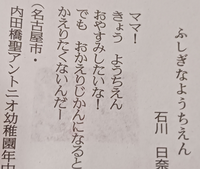 ふしぎなようちえん
石川 日奈
ママ！
きょう ようちえん
おやすみしたいな！
でも おかえりじかんになると
かえりたくないんだー
（名古屋市・
内田橋聖アントニオ幼稚園年中